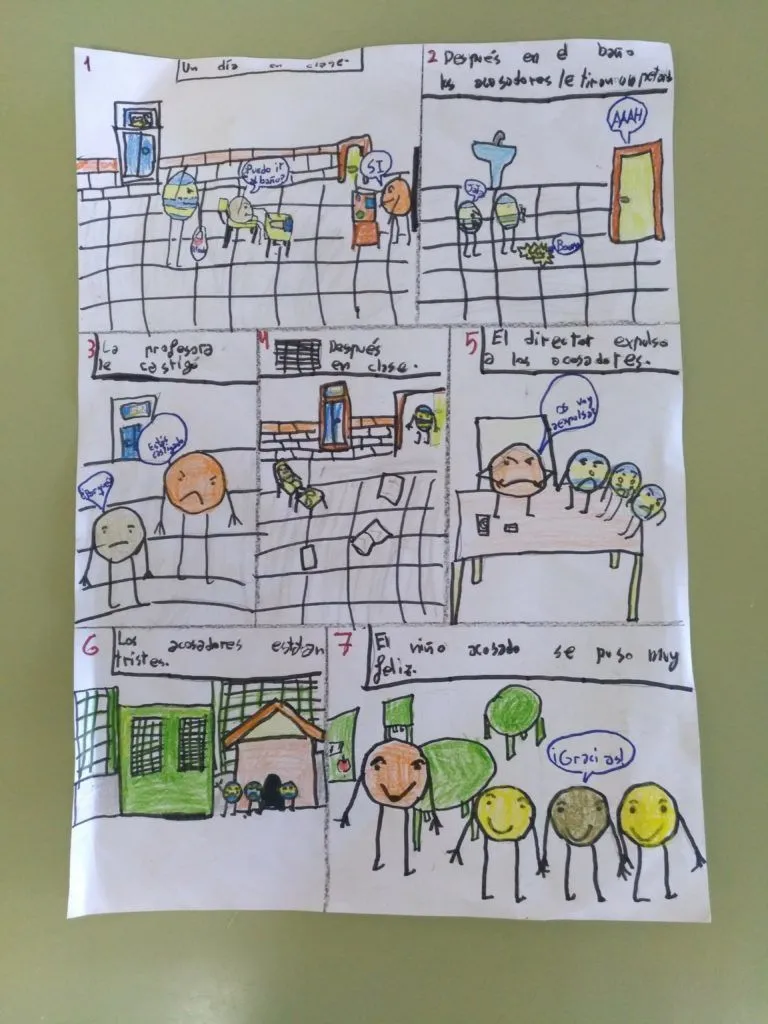 1
Un día en clase.
¿Puedo ir
al baño?
SI
2 Después en el baño
los acosadores le tiran un petardo
AAAH
JaJa
3 La profesora
le castigó
Estás
castigado
¿Porqué?
4 Después
en clase.
5 El director expulso
a los acosadores.
Os voy
a expulsar
6 Los acosadores estaban
tristes.
7 El niño acosado se puso muy
feliz.
¡Gracias!